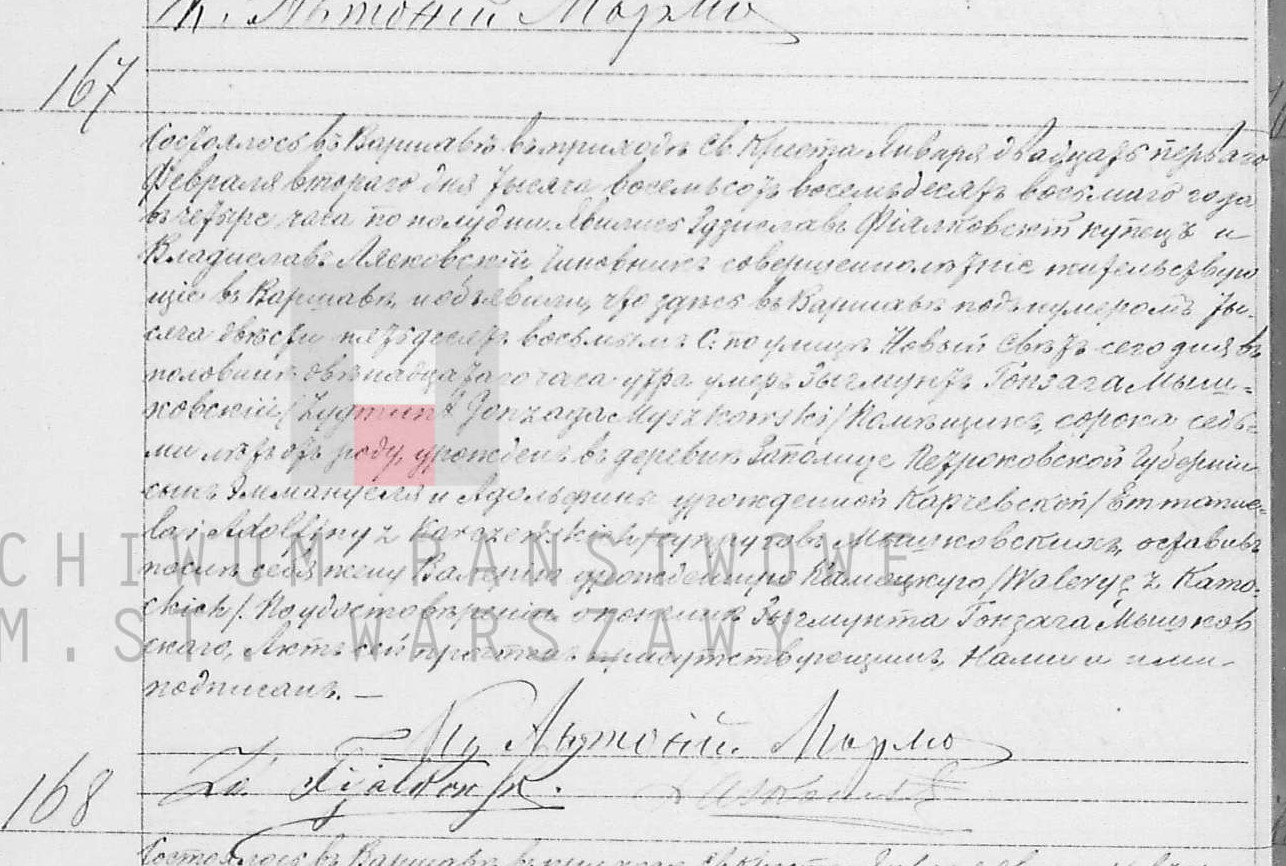 К. Антоній Мармо
167
Состоялось въ Варшавѣ въ приходѣ Св. Креста Января двадцать перваго
Февраля втораго дня тысяча восемьсотъ восемьдесятъ восьмаго года
въ четыре часа по полудни. Явились Здзиславъ Фіялковскій купецъ и
Владиславъ Лясковскій чиновникъ совершеннолѣтніе жительствую
щіе въ Варшавѣ, и объявили, что здѣсь въ Варшавѣ подъ нумеромъ ты-
сяча двѣсти пятьдесятъ восьмымъ С. по улицѣ Новый Свѣтъ сего дня въ
половинѣ двѣнадцатаго часа утра умеръ Зыгмунтъ Гонзага Мыш-
ковскій /Zygmunt Gonzaga Myszkowski/ Помѣщикъ, сорока седь-
ми лѣтъ отъ роду, урожденъ въ деревнѣ Заполице Петроковской Губерніи
сынъ Эммануеля и Адольфины урожденной Карчевской /Emmanue-
la i Adolfiny z Karczewskich/ супруговъ Мышковскихъ, оставивъ
послѣ себя жену Валерію урожденную Камоцкую /Waleryę z Kamo-
ckich/. По удостовѣреніи о кончинѣ Зыгмунта Гонзага Мышков
скаго, Актъ сей прочтенъ присутствующимъ, Нами и ими
подписанъ. —
Кс. Антоній Мармо
Zd. Fijałkowski.
Laskowski
168
Состоялось въ Варшавѣ въ приходѣ Св. Креста
ARCHIWUM PAŃSTWOWE
M.ST. WARSZAWY